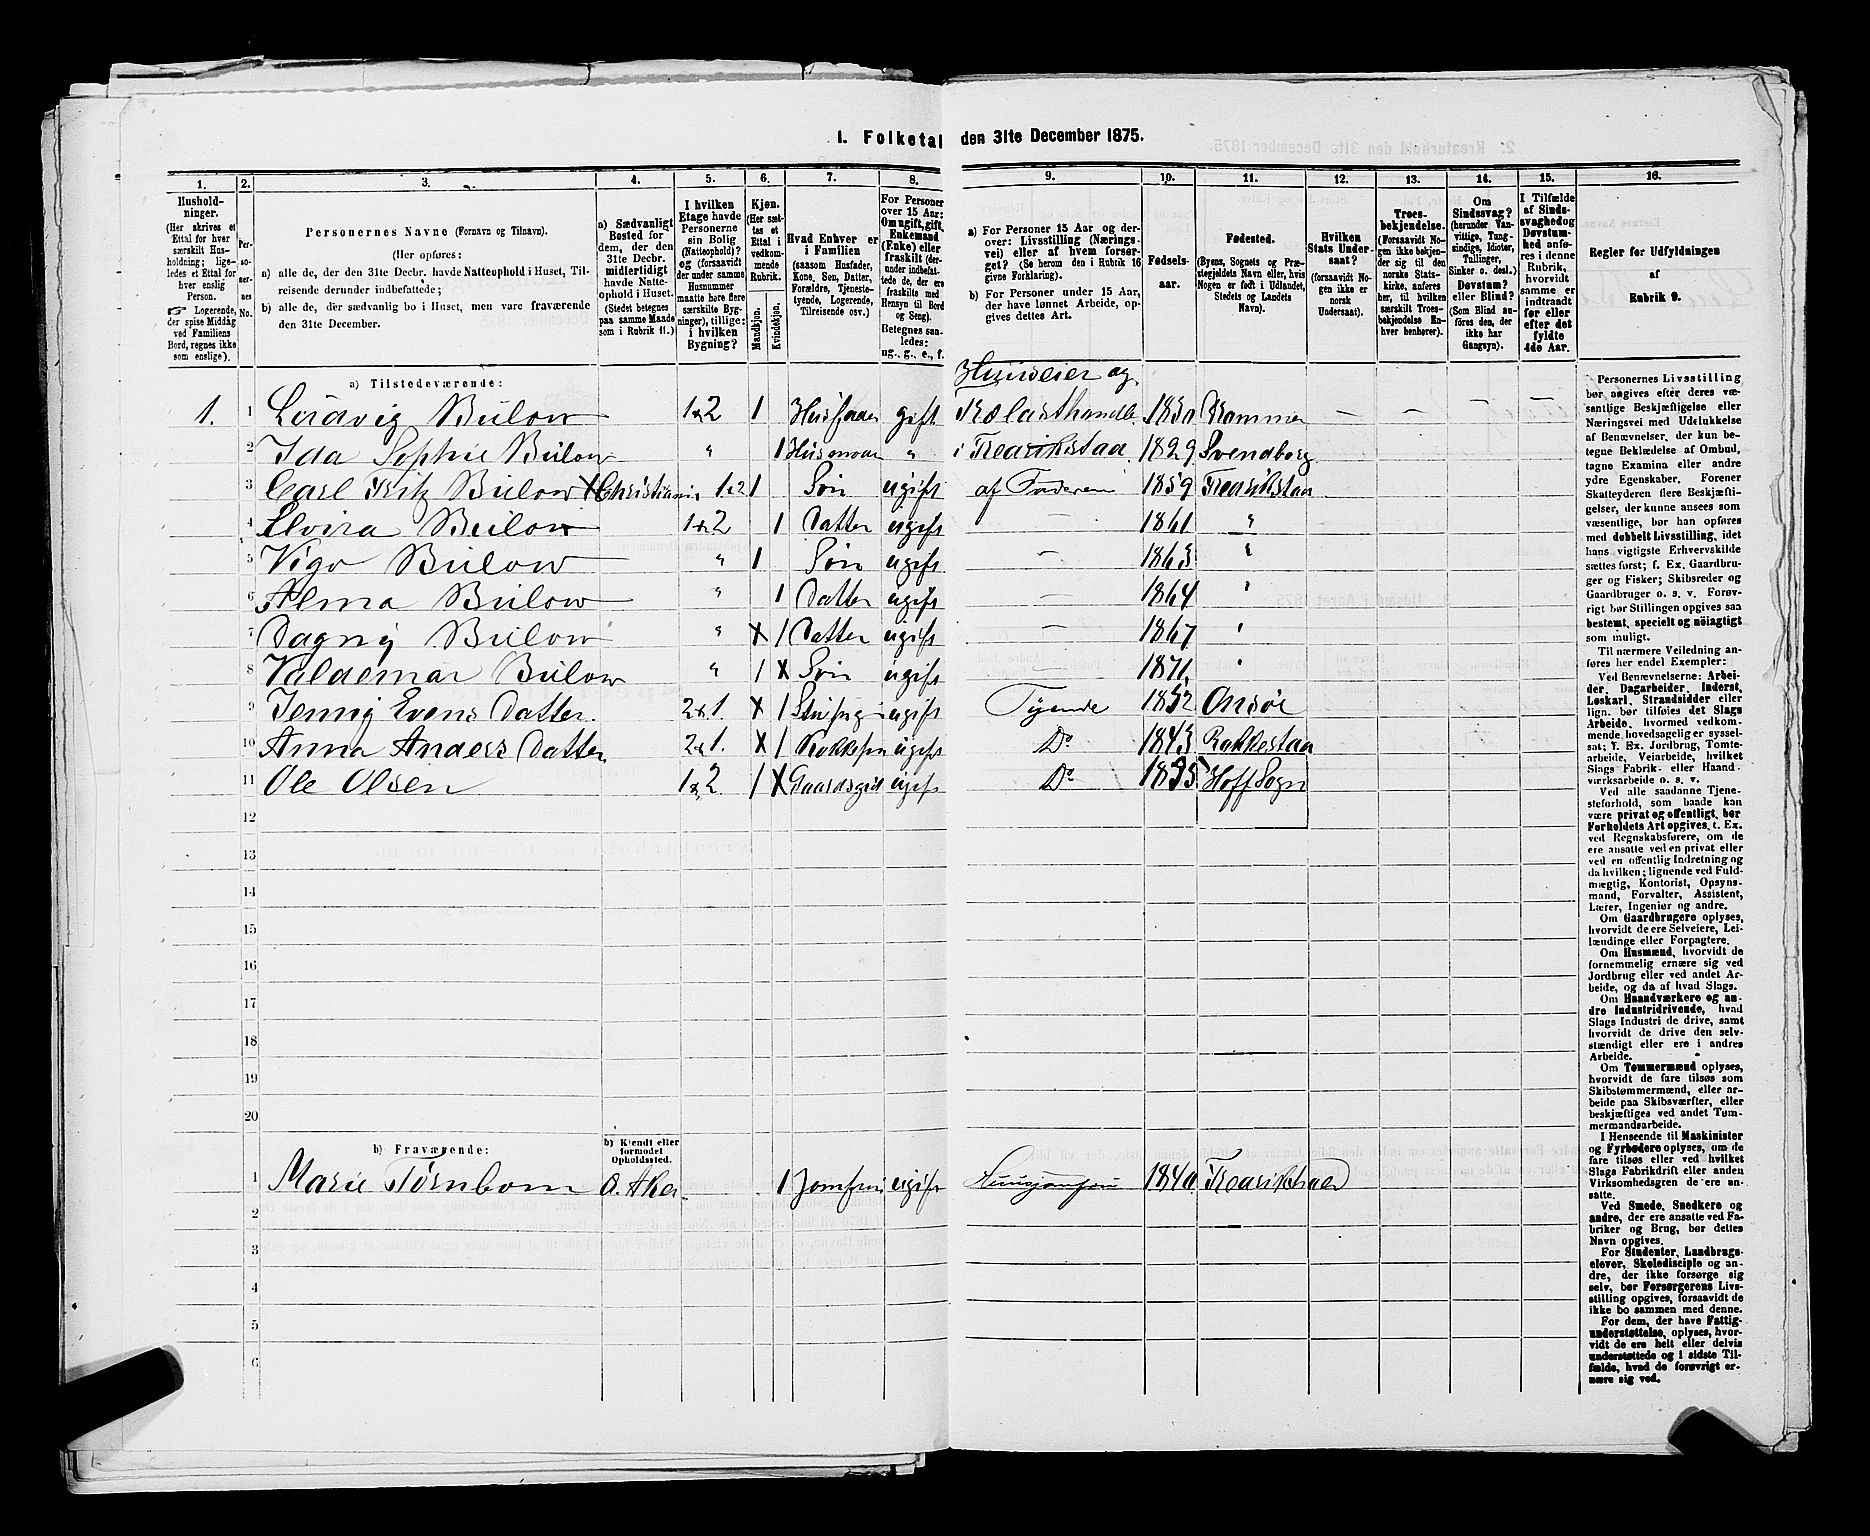 1. Folketal den 31te December 1875.
1. 2. 3. 4. 5. 6. 7. 8. 9. 10. 11. 12. 13. 14. 15. 16.
Husholdninger.
(Her skrives et Ettal for hver særskilt Husholdning; ligeledes et Ettal for hver enslig Person.
☞ Logerende, der spise Middag ved Familiens Bord, regnes ikke som enslige).
Personernes No.
Personernes Navne (Fornavn og Tilnavn).
(Her opføres:
a) alle de, der den 31te Decbr. havde Natteophold i Huset, Tilreisende derunder indbefattede;
b) alle de, der sædvanlig bo i Huset, men vare fraværende den 31te December.
a) Sædvanligt Bosted for dem, der den 31te Decbr. midlertidigt havde Natteophold i Huset. (Stedet betegnes paa samme Maade som i Rubrik 11.)
I hvilken Etage havde Personerne sin Bolig (Natteophold)? og (forsaavidt der under samme Husnummer maatte høre flere særskilte Bygninger), tillige: i hvilken Bygning?
Kjøn.
(Her sættes et Ettal i vedkommende Rubrik.
Mandskjøn.
Kvindekjøn.
Hvad Enhver er i Familien
(saasom Husfader, Kone, Søn, Datter, Forældre, Tjenestetyende, Logerende, Tilreisende osv.)
For Personer over 15 Aar: Om ugift, gift, Enkemand (Enke) eller fraskilt (derunder indbefattede de, der ere fraskilte med Hensyn til Bord og Seng).
Betegnes saaledes: ug., g., e., f.
a) For Personer 15 Aar og derover: Livsstilling (Næringsvei) eller af hvem forsørget? (Se herom den i Rubrik 16 givne Forklaring).
b) For Personer under 15 Aar, der have lønnet Arbeide, opgives dettes Art.
Fødselsaar.
Fødested.
(Byens, Sognets og Præstegjeldets Navn eller, hvis Nogen er født i Udlandet, Stedets og Landets Navn).
Hvilken Stats Undersaat?
(forsaavidt Nogen ikke er norsk Undersaat).
Troesbekjendelse.
(Forsaavidt Nogen ikke bekjender sig til den norske Statskirke, anføres her, til hvilken særskilt Troesbekjendelse Enhver benhører).
Om Sindssvag? (herunder Vanvittige, Tungsindige, Idioter, Tullinger, Sinker o. desl.) Døvstum? eller Blind? (Som Blind anføres den, der ikke har Gangsyn).
I Tilfælde af Sindssvaghed og Døvstumhed anføres i denne Rubrik, hvorvidt samme er indtraadt før eller efter det fyldte 4de Aar.
Regler for Udfyldningen af Rubrik 9.
a) Tilstedeværende:
Huuseier og
1. 1 Ludvig Bülow 1x2 1 Husfader gift Trælasthandl. 1830 Drammen
2 Ida Sophie Bülow " 1 Husmoder " i Fredrikstad 1829 Svendborg
3 Carl Fritz Bülow X Christiania 1x2 1 Søn ugift af Faderen 1859 Fredrikstad
4 Elvira Bülow 1x2 1 Datter ugift — 1861 "
5 Vigo Bülow " 1 Søn ugift — 1863 "
6 Alma Bülow " 1 Datter ugift — 1864 "
7 Dagny Bülow " X 1 Datter ugift — 1867 "
8 Valdemar Bülow " 1 X Søn ugift — 1871 "
9 Jenny Evens Datter 2x1. X 1 ugift Tyende 1852 Onsøe
10 Anna Anders Datter 2x1. X 1 Kokkepi ugift Do 1843 Rakkestad
11 Ole Olsen 1x2 1 X Gaardsgut ugift Do 1835 Hoff Sogn
12
13
14
15
16
17
18
19
20
b) Fraværende:
b) Kjendt eller formodet Opholdssted.
1 Marie Tørnbom Ø. Aker 1 Jomfru ugift Huusjomfru 1840 Fredrikshald
2
3
4
5
6
Personernes Livsstilling bør angives efter deres væsentlige Beskjæftigelse eller Næringsvei med Udelukkelse af Benævnelser, der kun betegne Beklædelse af Ombud, tagne Examina eller andre ydre Egenskaber. Forener Skatteyderen flere Beskjæftigelser, der kunne ansees som væsentlige, bør han opføres med dobbelt Livsstilling, idet hans vigtigste Erhvervskilde sættes først; f. Ex. Gaardbruger og Fisker; Skibsreder og Gaardbruger o. s. v. Forøvrigt bør Stillingen opgives saa bestemt, specielt og nöiagtigt som muligt.
Til nærmere Veiledning anføres her endel Exempler:
Ved Benævnelserne: Arbeider, Dagarbeider, Inderst, Løskarl, Strandsidder eller lign. bør tilføies det Slags Arbeide, hvormed vedkommende hovedsagelig er sysselsat; f. Ex. Jordbrug, Tomtearbeide, Veiarbeide, hvilket Slags Fabrik- eller Haandværksarbeide o. s. v.
Ved alle saadanne Tjenesteforhold, som baade kan være privat og offentligt, bør Forholdets Art opgives, t. Ex. ved Regnskabsførere, om de ere ansatte ved en privat eller ved en offentlig Indretning og da hvilken; lignende ved Fuldmægtig, Kontorist, Opsynsmand, Forvalter, Assistent, Lærer, Ingeniør og andre.
Om Gaardbrugere oplyses, hvorvidt de ere Selveiere, Leilændinge eller Forpagtere.
Om Husmænd, hvorvidt de fornemmelig ernære sig ved Jordbrug eller ved andet Arbeide, og da af hvad Slags.
Om Haandværkere og andre Industridrivende, hvad Slags Industri de drive, samt hvorvidt de drive den selvstændigt eller ere i andres Arbeide.
Om Tømmermænd oplyses, hvorvidt de fare tilsøs som Skibstømmermænd, eller arbeide paa Skibsværfter, eller beskjæftiges ved andet Tømmermandsarbeide.
I Henseende til Maskinister og Fyrbødere oplyses, om de fare tilsøs eller ved hvilket Slags Fabrikdrift eller anden Virksomhedsgren de ere ansatte.
Ved Smede, Snedkere og andre, der ere ansatte ved Fabriker og Brug, bør dettes Navn opgives.
For Studenter, Landbrugselever, Skoledisciple og andre, der ikke forsørge sig selv, bør Forsørgerens Livsstilling opgives, forsaavidt de ikke bo sammen med denne.
For dem, der have Fattigunderstøttelse, oplyses, hvorvidt de ere helt eller delvis understøttede og i sidste Tilfælde, hvad de forøvrigt ernære sig ved.